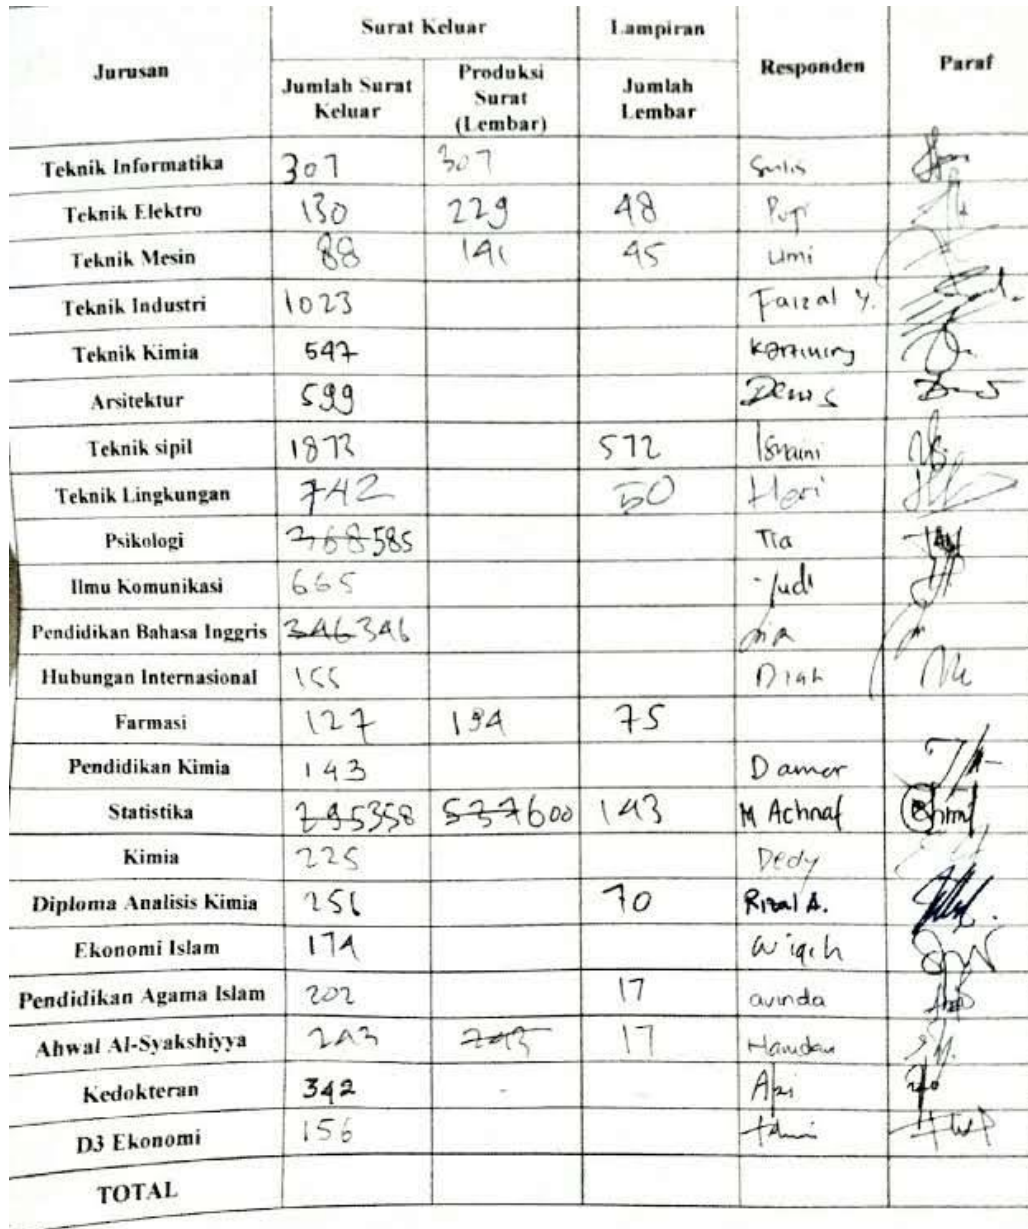 Jurusan Surat Keluar Lampiran Responden Paraf
Jumlah Surat Keluar Produksi Surat (Lembar) Jumlah Lembar
Teknik Informatika 307 307 Sulis
Teknik Elektro 130 229 48 Puji
Teknik Mesin 88 141 45 Umi
Teknik Industri 1023 Faizal Y.
Teknik Kimia 547
Arsitektur 599 Denis
Teknik sipil 1872 572 Isnaini
Teknik Lingkungan 742 50 Heri
Psikologi 368 585 Tia
Ilmu Komunikasi 665 Yudi
Pendidikan Bahasa Inggris 346 346
Hubungan Internasional 155 Diah
Farmasi 127 194 75
Pendidikan Kimia 143 Damar
Statistika 295 358 537 600 143 M Achnaf
Kimia 225 Dedy
Diploma Analisis Kimia 256 70 Rizal A.
Ekonomi Islam 174
Pendidikan Agama Islam 202 17 avinda
Ahwal Al-Syakshiyya 243 243 17 Hamdan
Kedokteran 342 -
D3 Ekonomi 156
TOTAL